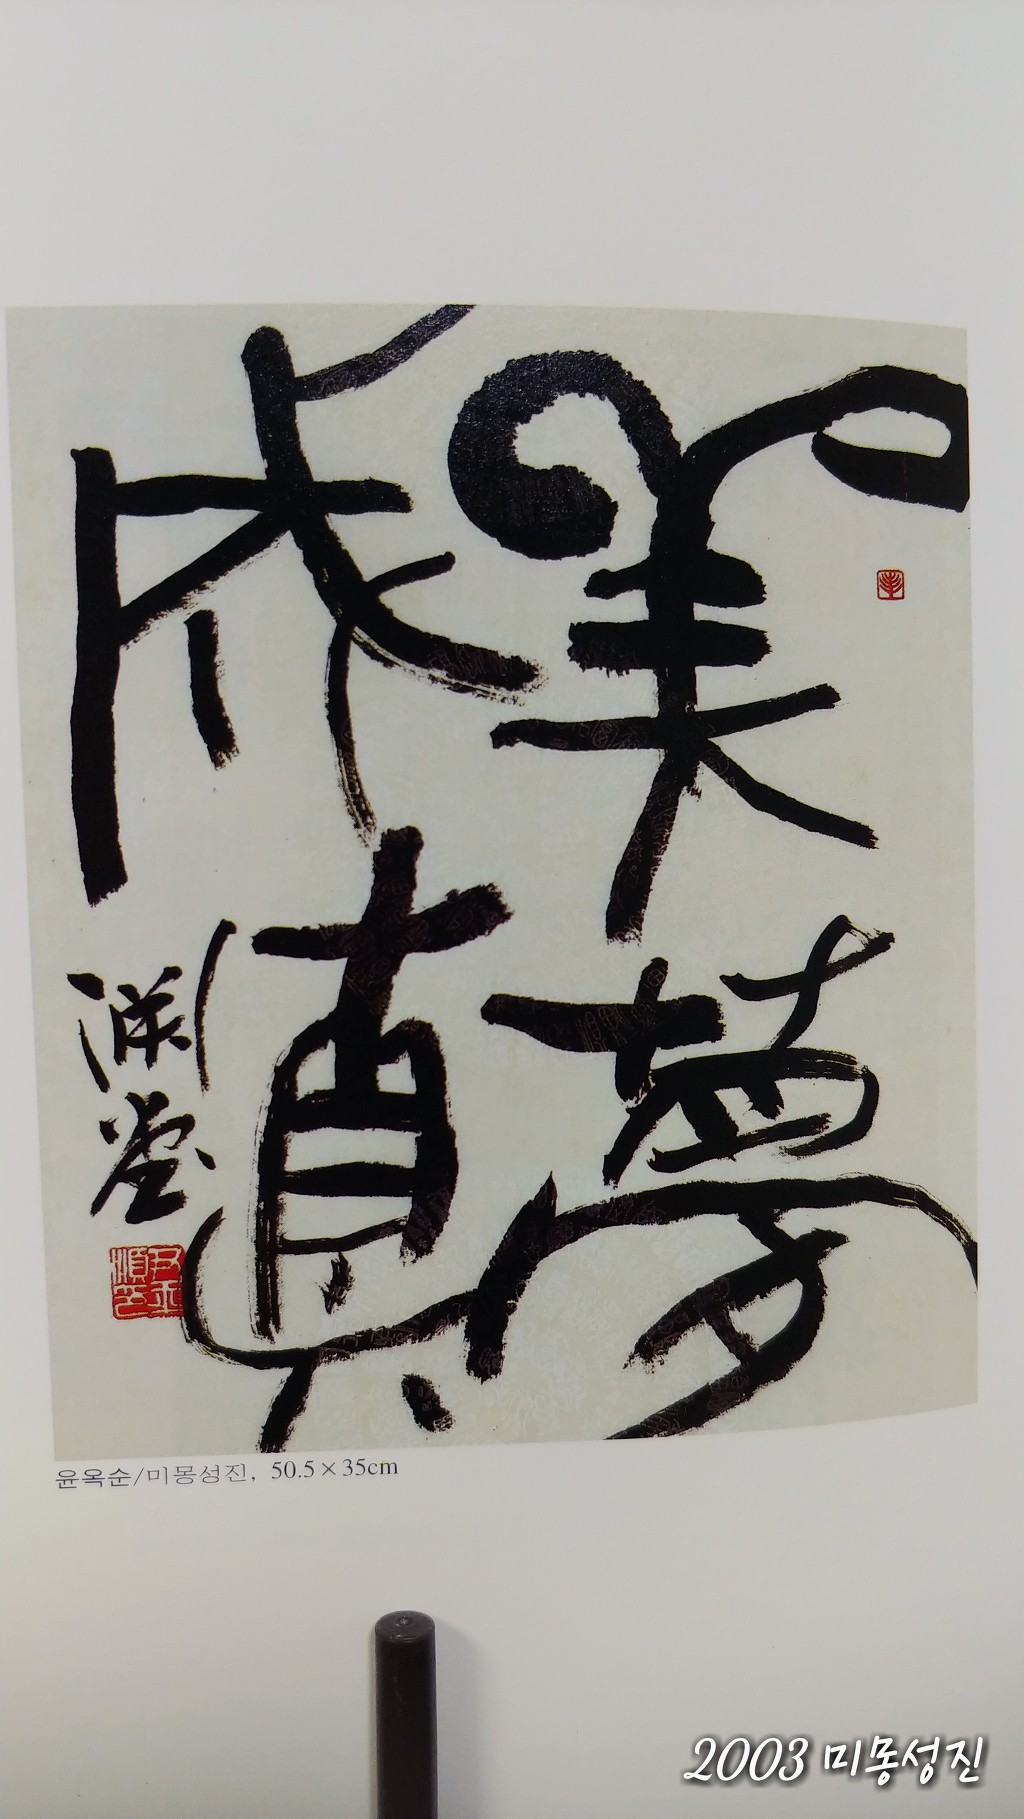 美夢
成真
淵堂
尹玉
順印
윤옥순/미몽성진, 50.5×35cm
2003 미몽성진